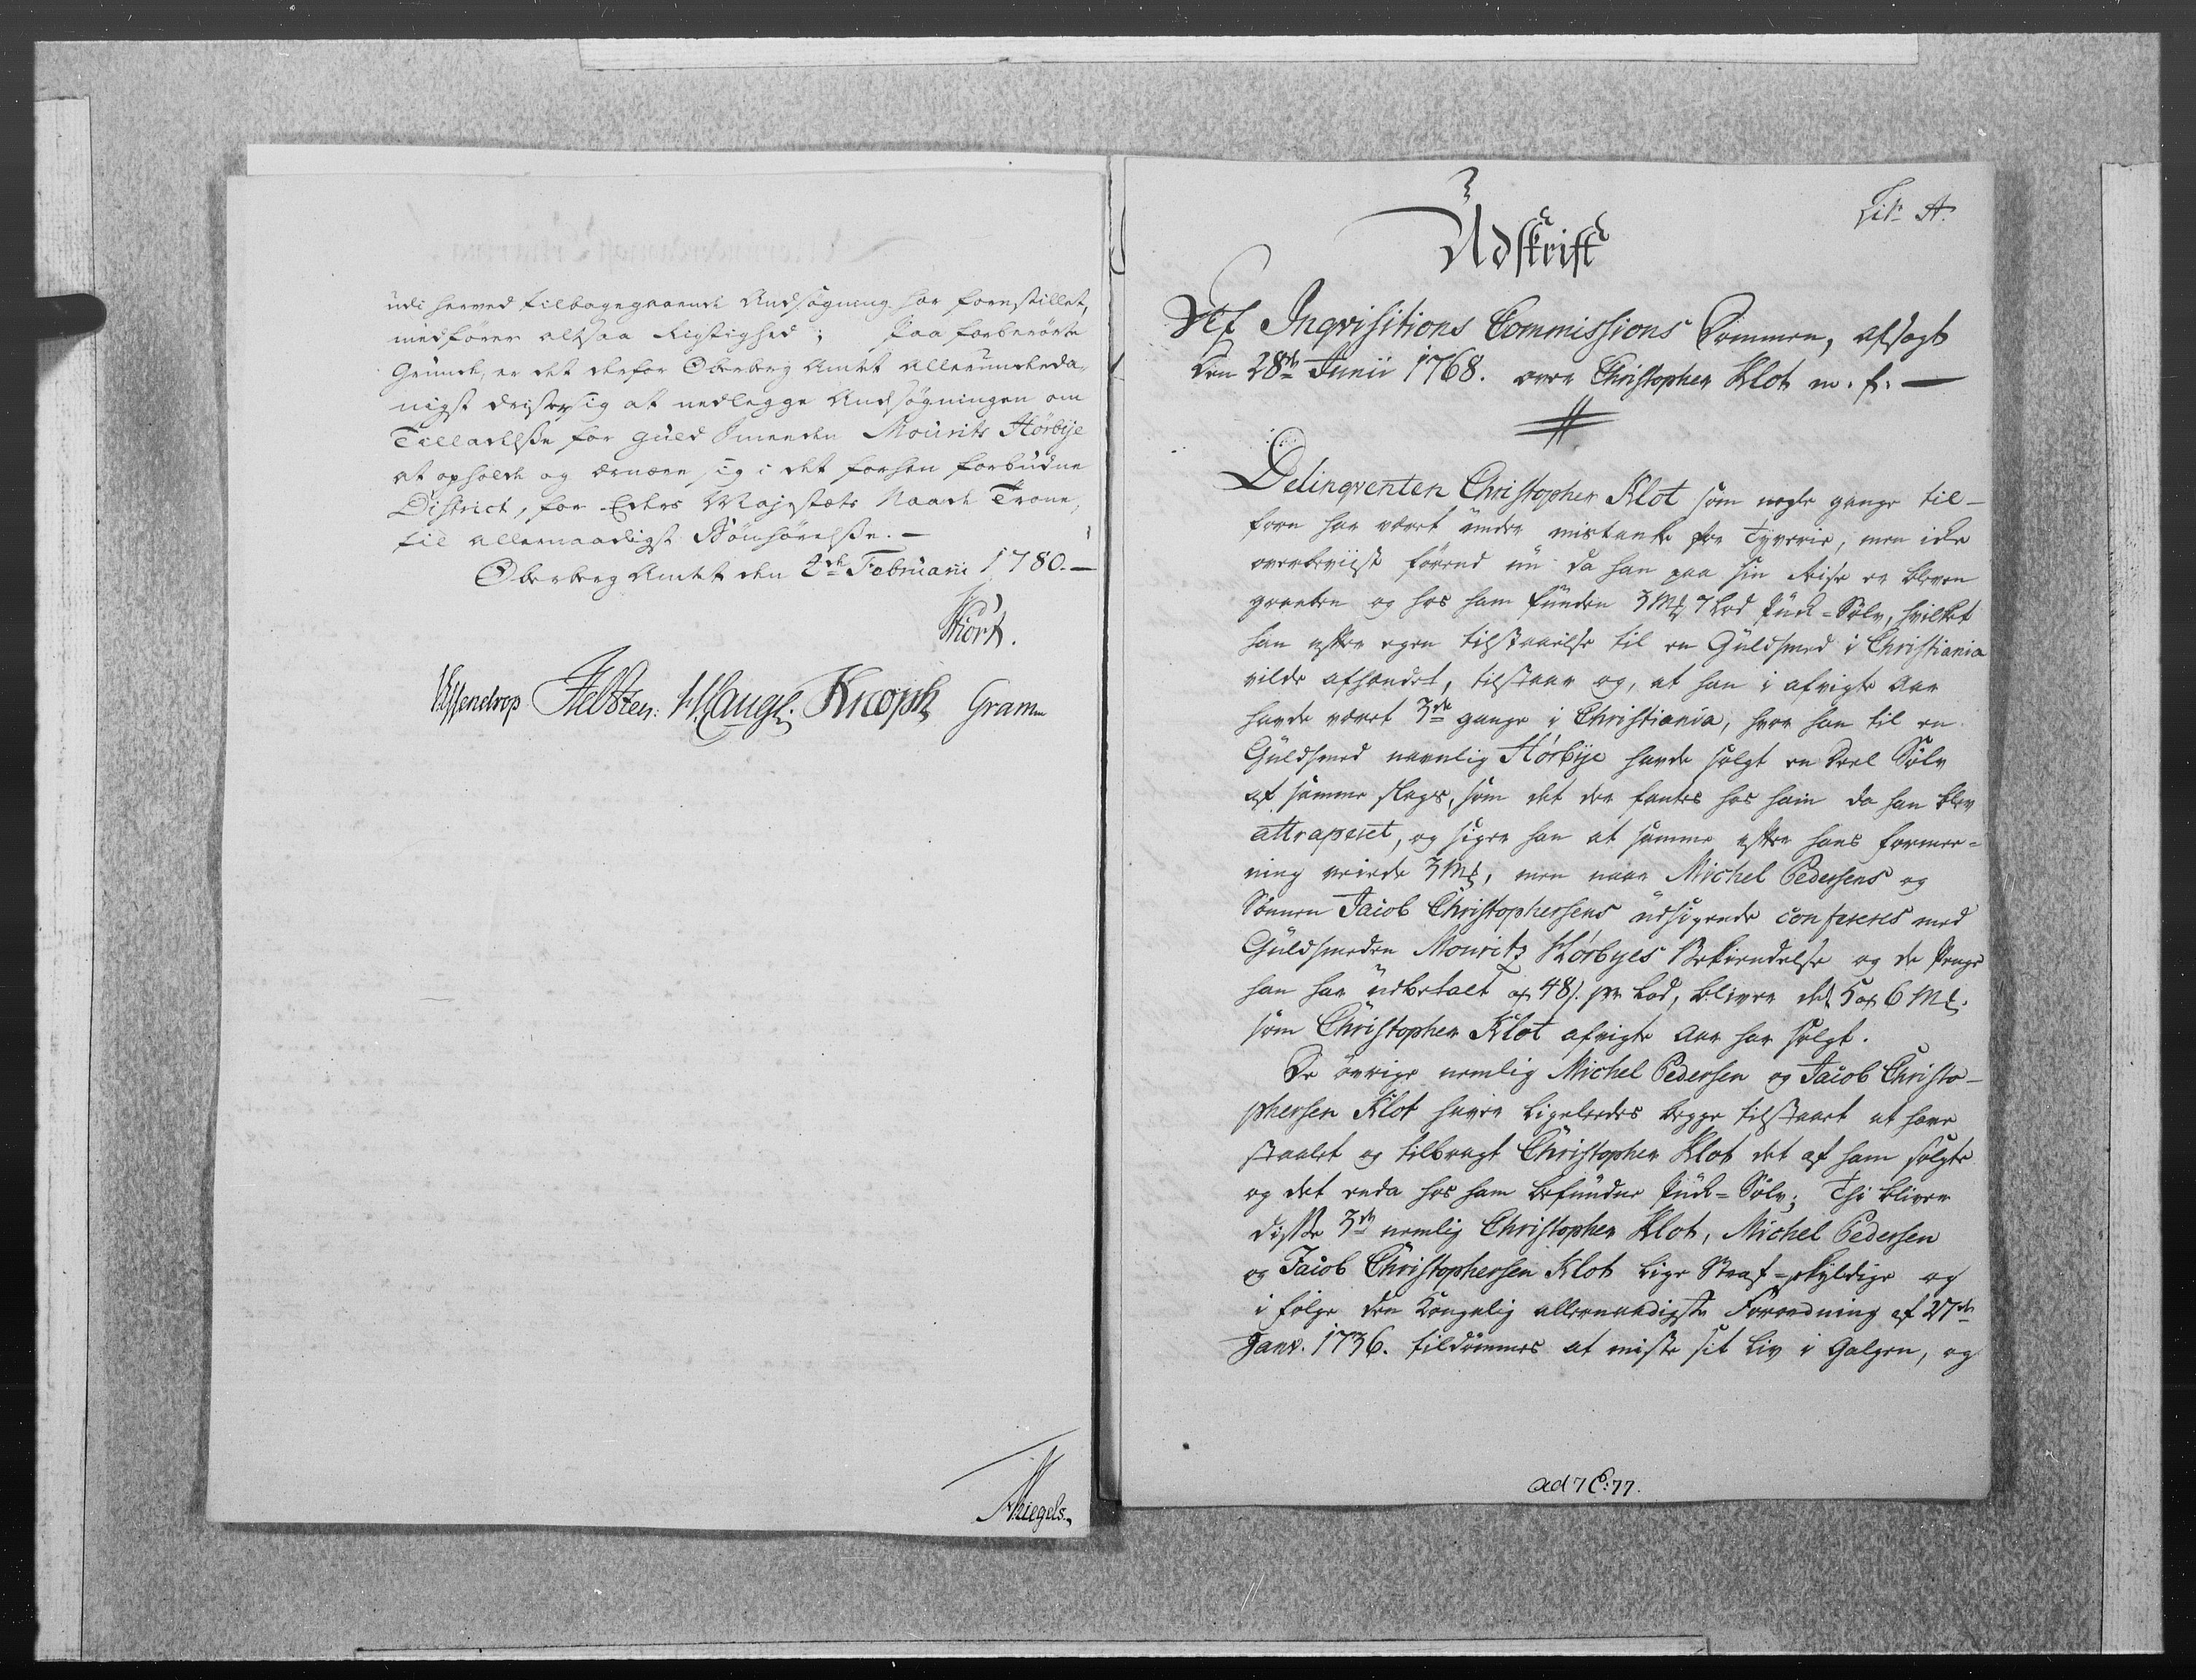 udi herved tilbagegaaende Andsøgning har forestillet,
medfører altsaa Rigtighed; Paa forberørte
Grunde, er det derfor Oberberg Amtet allerunderda-
nigst drister sig at nedlegge Andsøgningen om
Tilladelse for Guld Smeeden Mourits Hørbije
at opholde og ernære sig i det forhen forbudne
District, for Eders Majestæts Naade Trone,
til allernaadigst Bønhørelse. —
Oberberg Amtet den 2de Februarii 1780. —
Hiort.
Essendrop Feldsten: Knoph Gram
Lit: A.
Udskrift
Af Inqvisitions Commissions Dommen, afsagt
den 28de Junii 1768. over Christopher Klot m. f. —
Delinqventen Christopher Klot som nogle gange til-
forn har været under mistanke for Tyverie, men icke
overbeviist førend nu da han paa sin Reise er bleven
greeben og hos ham funden 3 Mk 7 Lod Puck-Sølv, hvilket
han efter egen tilstaaelse til en Guldsmed i Christiania
vilde afhændet, tilstaar og, at han i afvigte Aar
havde været 3de gange i Christiania, hvor han til en
Guldsmed navnlig Hørbije havde solgt en Deel Sølv
af samme slags, som det der fantes hos ham da han blev
attraperet, og siger han at samme efter hans formee-
ning veiede 3 Mk, men naar Michel Pedersens og
Sønnen Jacob Christophersens udsigende confereres med
Guldsmeden Mouritz Hørbyes Bekiendelse og de Penge
han har udbetalt a 48 s. pr Lod, bliver det 5 a 6 Mk.
som Christopher Klot afvigte Aar har solgt.
De øvrige nemlig Michel Pedersen og Jacob Christo-
phersen Klot haver ligeleedes begge tilstaaet at have
staalet og tilbragt Christopher Klot det af ham solgte
og det enda hos ham befundne Puck-Sølv; Thi bliver
disse 3de nemlig Christopher Klot, Michel Pedersen
og Jacob Christophersen Klot lige Straf-skyldige og
i følge den Kongelig allernaadigste Forordning af 27de
Janv. 1736. tildømmes at miste sit Liv i Galgen, og
ad 7 C: 77.